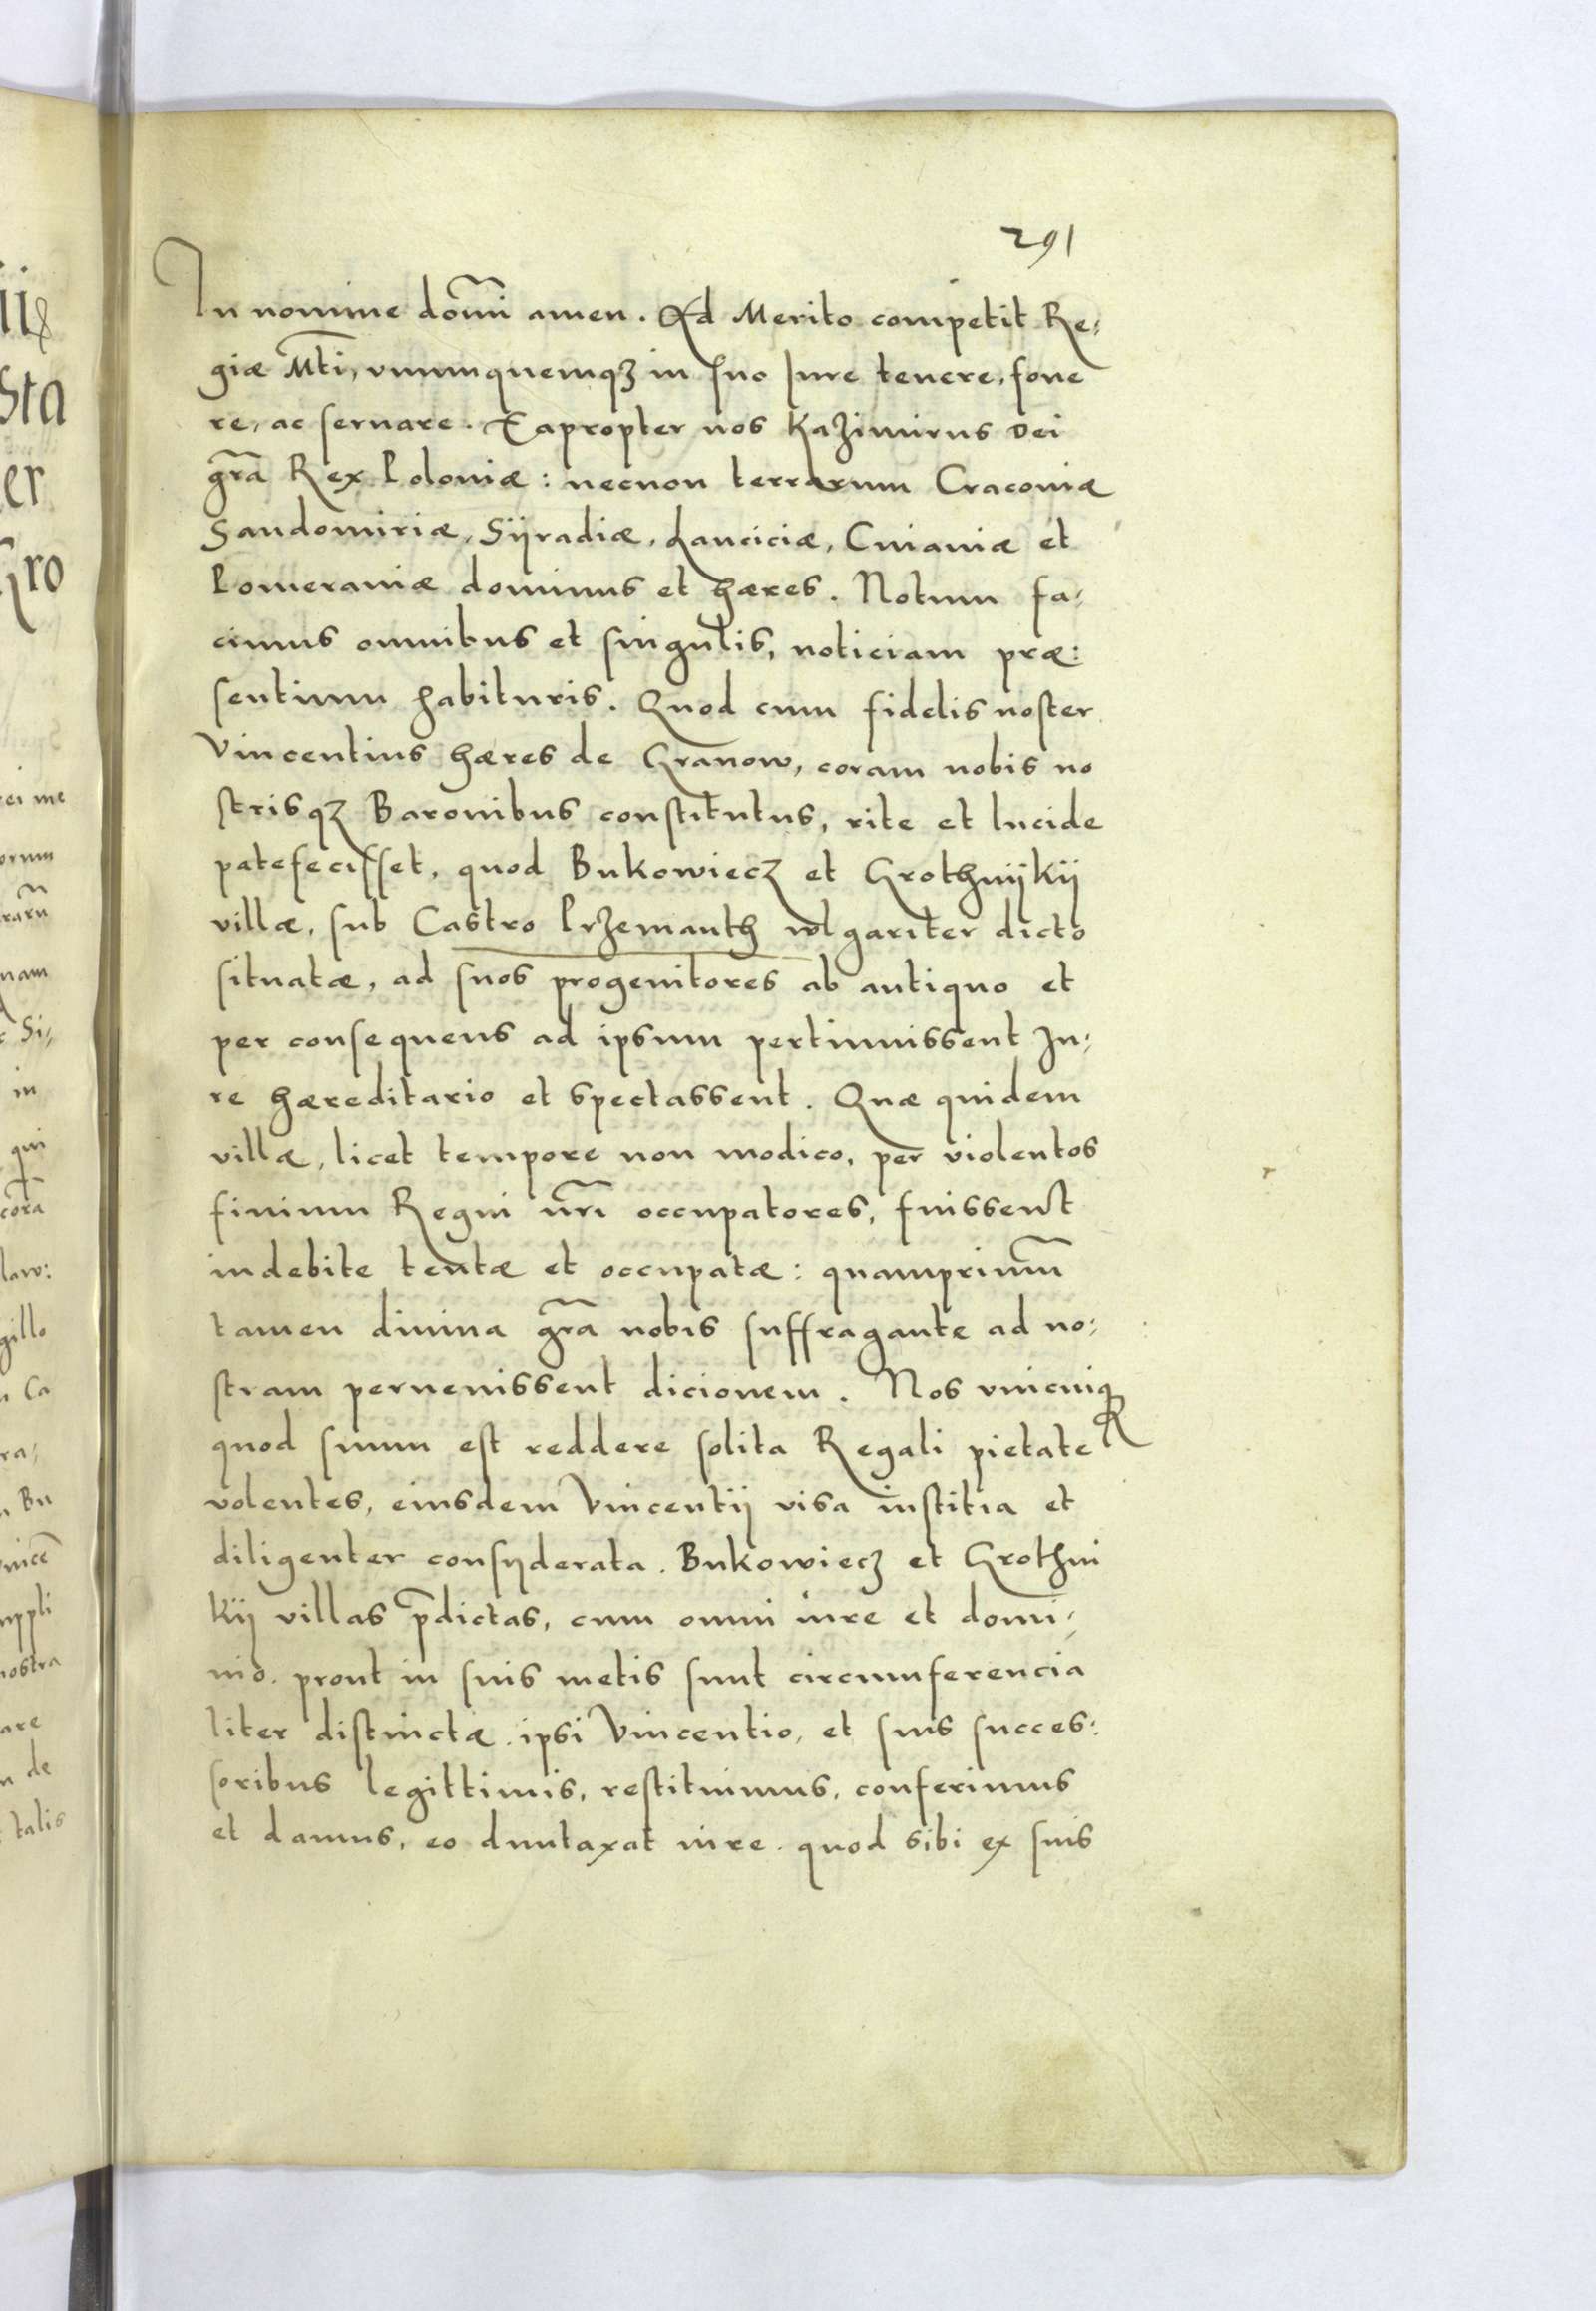 291
In nomine dom̃i amen. Ad Merito competit Re:
giæ Mti, vnumquemqꝫ in suo Jure tenere, foue
re, ac seruare. Eapropter nos Kazimirus Dei
gr̃a Rex Poloniæ: necnon terrarum Cracouiæ
Sandomiriæ, Sijradiæ, Lanciciæ, Cuiauiæ et
Pomeraniæ dominus et hæres. Notum fa:
cimus omnibus et singulis, noticiam præ:
sentium habituris. Quod cum fidelis noster
Vincentius hæres de Granow, coram nobis no
strisqꝫ Baronibus constitutus, rite et lucide
patefecisset, quod Bukowiecz et Grothnijkij
villæ, sub Castro Przemanth wlgariter dicto
situatæ, ad suos progenitores ab antiquo et
per consequens ad ipsum pertinuissent Ju:
re hæreditario et spectassent. Quæ quidem
villæ, licet tempore non modico, per violentos
finium Regni nr̃i occupatores, fuissent
indebite tentæ et occupatæ: quamprimũ
tamen diuina gr̃a nobis suffragante ad no:
stram peruenissent dicionem. Nos vnicuiqꝫ
quod suum est reddere solita Regali pietate
volentes, eiusdem Vincentij visa iustitia et
diligenter consyderata. Bukowiecz et Grothni
kij villas p̃dictas, cum omni iure et domi:
nio. prout in suis metis sunt circumferencia
liter distinctæ. ipsi Vincentio, et suis succes:
soribus legittimis, restituimus, conferimus
et damus, eo duntaxat iure. quod sibi ex suis
iiꝭ
sta
er
Gro
rei me
orum
rarũ
nam
c Si:
in
qui
corã
law:
gillo
n Ca
ra:
n Bu
vincẽ
uppli
nostra
are
n de
t talis